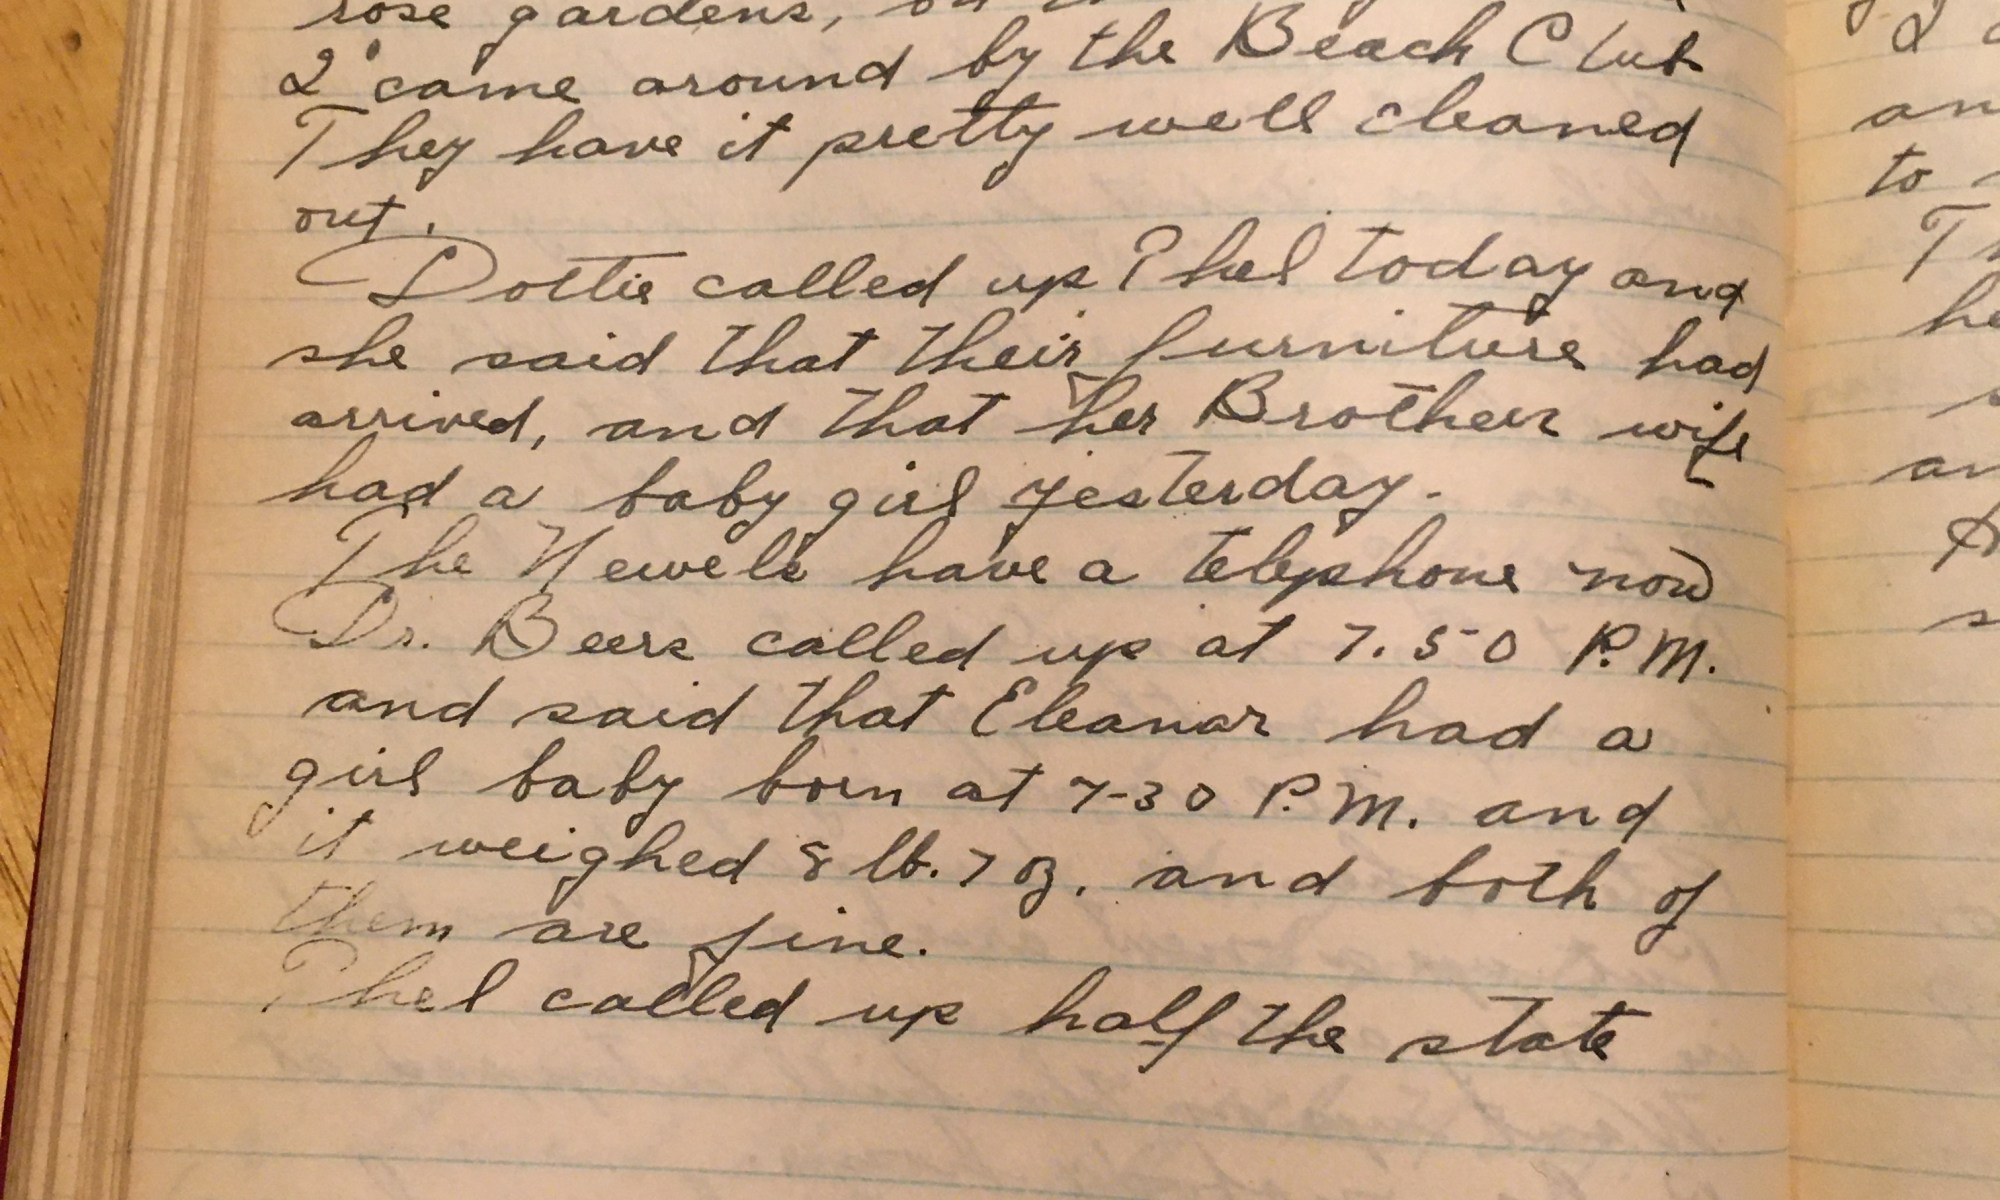 rose gardens, on
I came around by the Beach Club
They have it pretty well cleaned
out.
Dottie called up Phel today and
she said that their furniture had
arrived, and that her Brothers wife
had a baby girl yesterday.
The Newels have a telephone now
Dr. Beers called up at 7.50 P.M.
and said that Eleanor had a
girl baby born at 7-30 P.M. and
it weighed 8 lb. 7 oz. and both of
them are fine.
Phel called up half the state
I
an
to